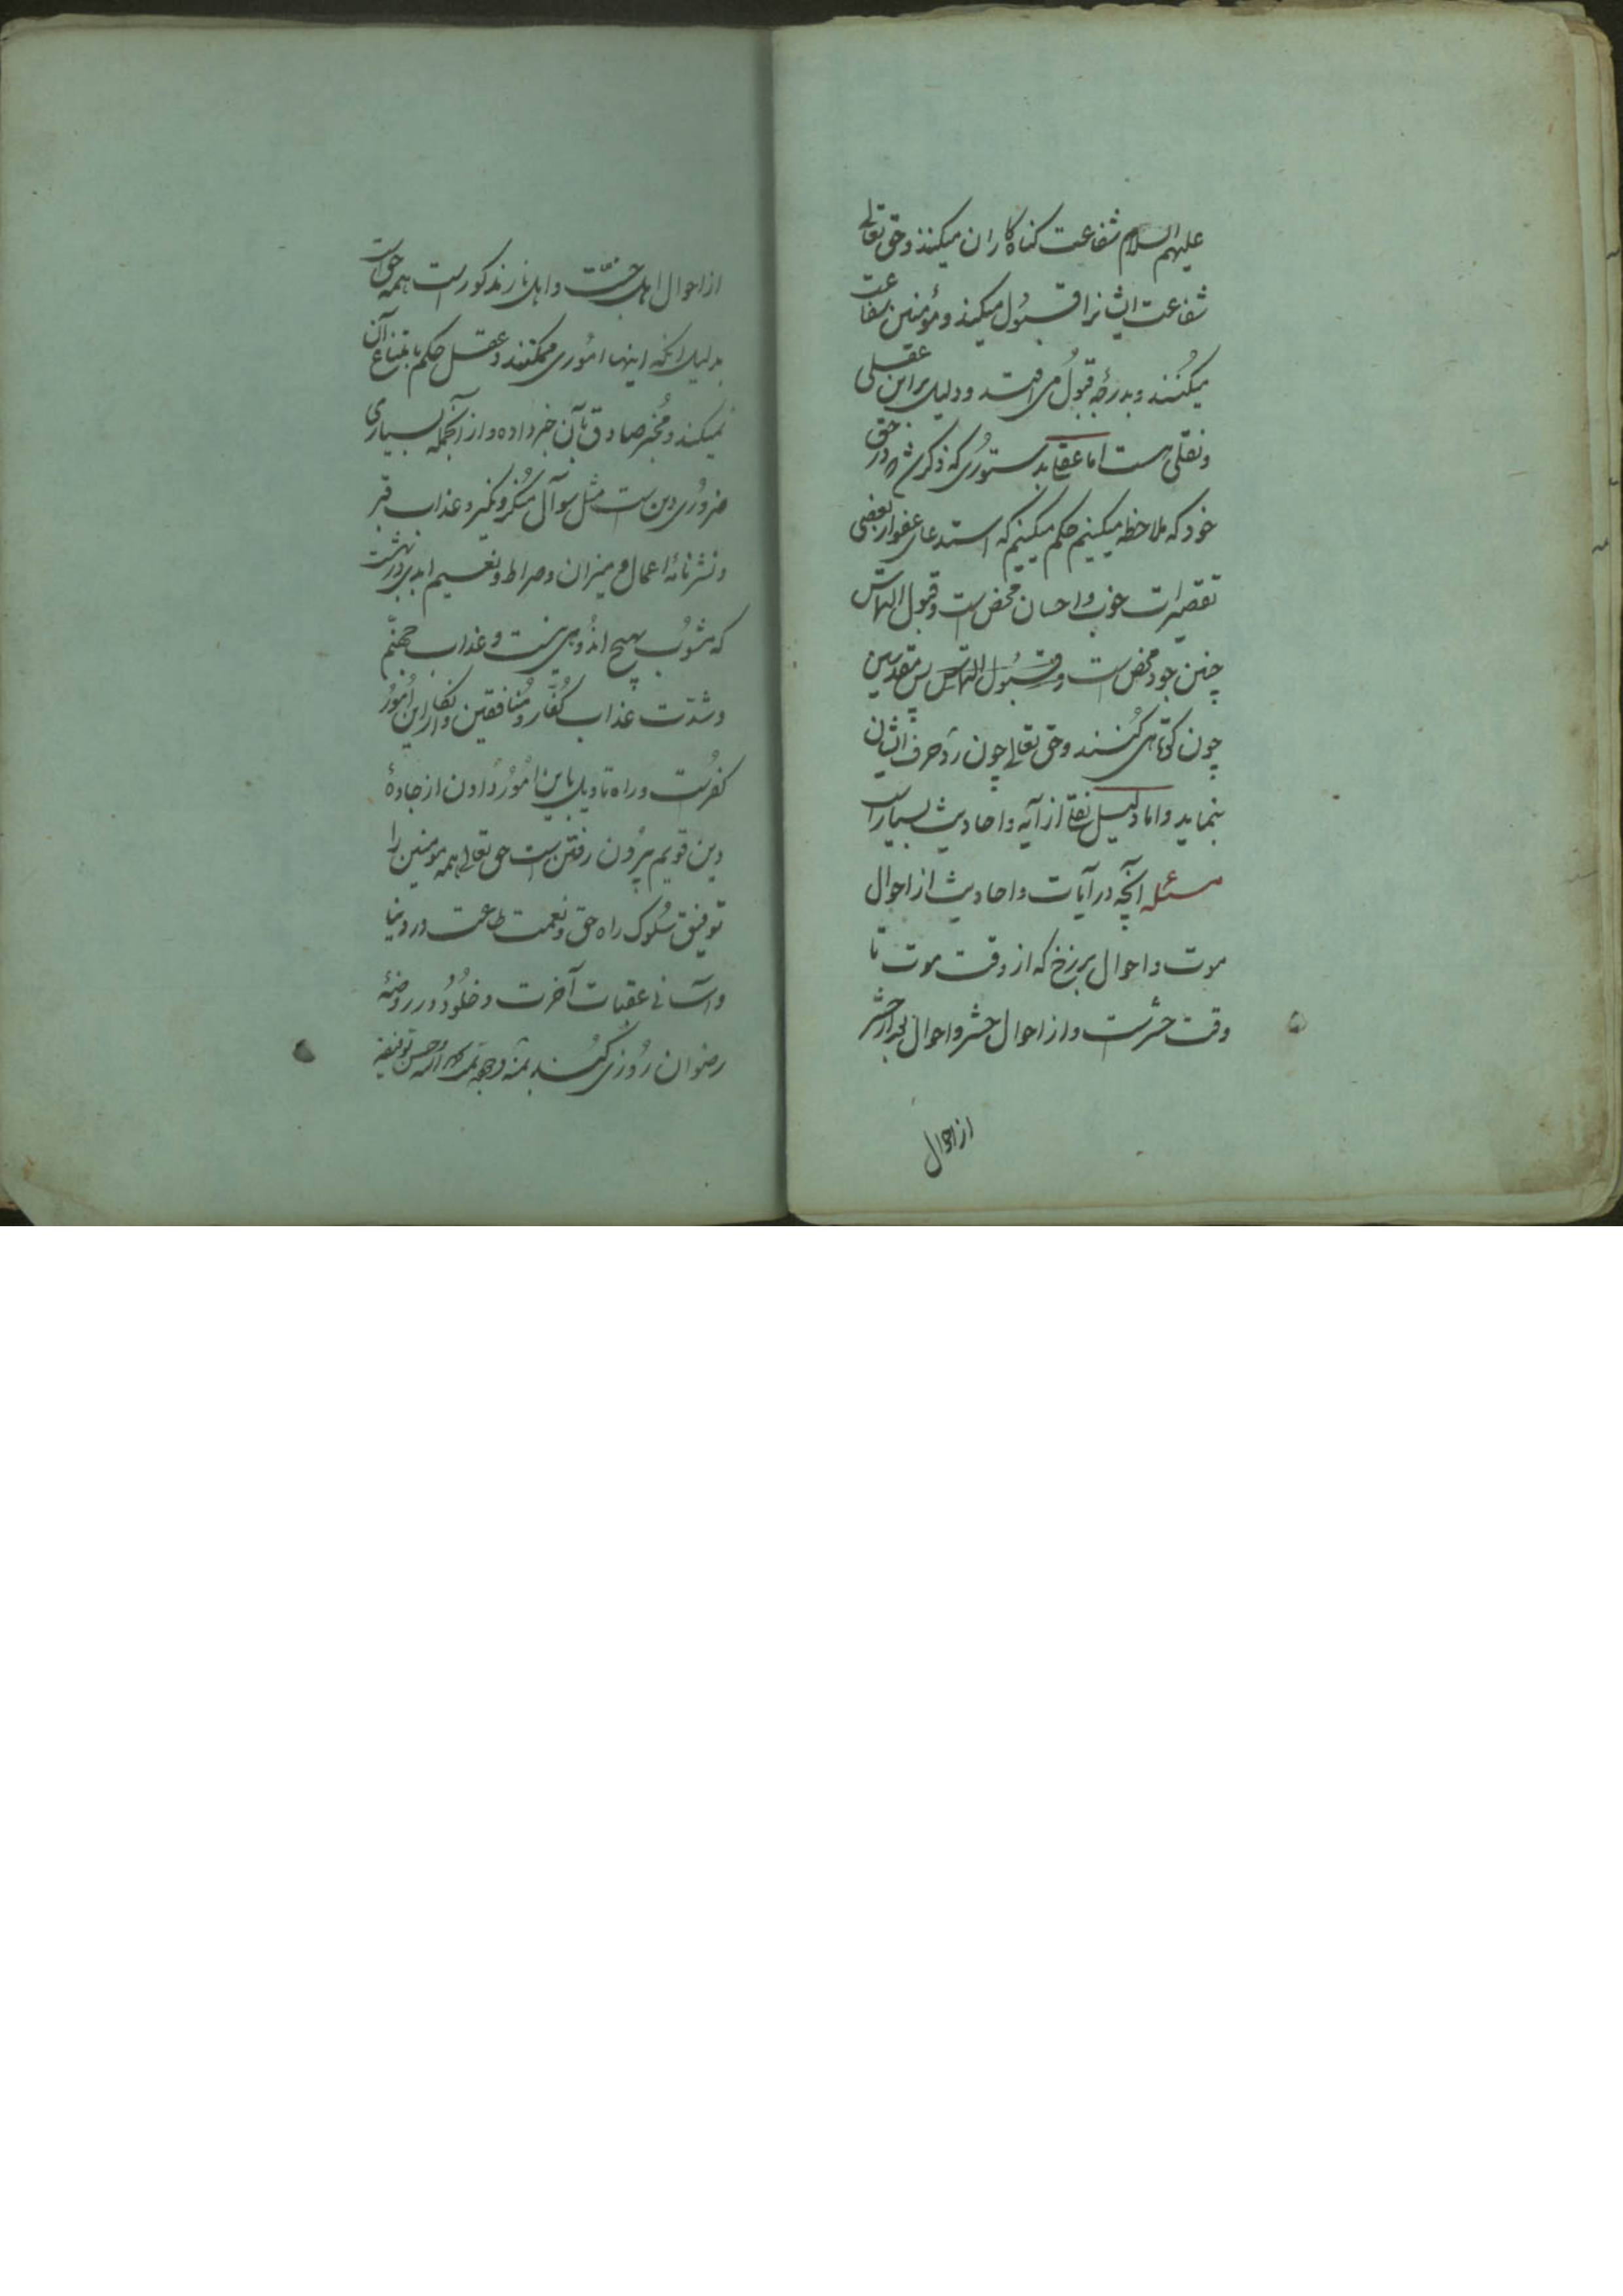 علیهم السلام شفاعت کناه کاران میکنند و حق تعالی
شفاعت ایشانرا قبول میکند و مؤمنین شفاعت
میکنند و بدرجه قبول می افتد و دلیل بر این عقلی
و نقلی هست اما عقلی بدستوری که ذکر شد در حق
خود که ملاحظه میکنیم حکم میکنیم که استدعای عفو از بعضی
تقصیرات خوب و احسان محض است و قبول التماس
چنین جود محض است و قبول التماس پس مقدسین
چون کوتاهی کنند و حق تعالی چون رد حرف ایشان
بنماید و اما دلیل نقلی از آیه و احادیث بسیار است
مسئله آنچه در آیات و احادیث از احوال
موت و احوال برزخ که از وقت موت تا
وقت حشرست و از احوال حشر و احوال بعد از حشر
از احوال
از احوال اهل جنّت و اهل نار مذکور است همه حق است
بدلیل انکه اینها اموری ممکنند و عقل حکم بامتناع آن
نمیکند و مُخبر صادق بآن خبر داده و از آنجمله بسیاری
ضروری دین ست مثل سوآل مُنکر و نکیر و عذاب قبر
و نشر نامۀ اعمال و میزان و صراط و نعیم ابدی در بهشت
که مشوب بهیچ اندوهی نیست و عذاب جهنّم
و شدّت عذاب کُفّار و مُنافقین و انکار این اُمور
کفرست و راه تاویل باین اُمور دادن از جادۀ
دین قویم بیرون رفتن است حق تعالی همه مومنین را
توفیق سُلوک راه حق و نعمت طاعت در دنیا
و آسانی عقبات آخرت و خلُود در روضۀ
رضوان روزی کند بمنه وجوده تمت حسن توفیقه